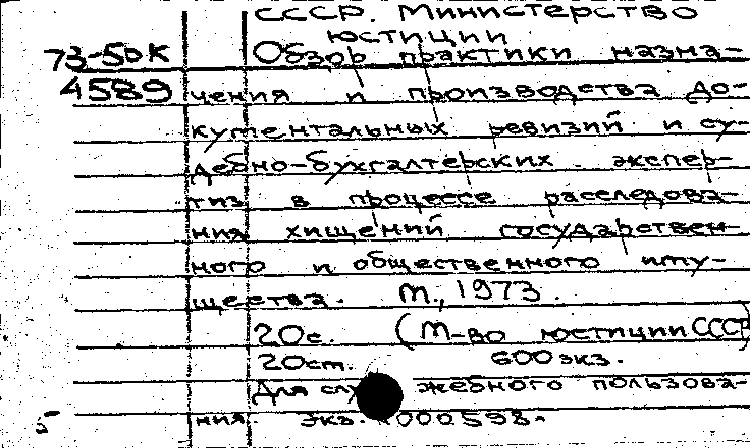 СССР. Министерство
юстиции
73-50К Обзор практики назна-
4589 чения и производства до-
кументальных ревизий и су-
дебно-бухгалтерских экспер-
тиз в процессе расследова-
ния хищений государствен-
ного и общественного иму-
щества. М., 1973.
20с. (М-во юстиции СССР)
20см. 600 экз.
Для служебного пользова-
ния. Экз. 000598.